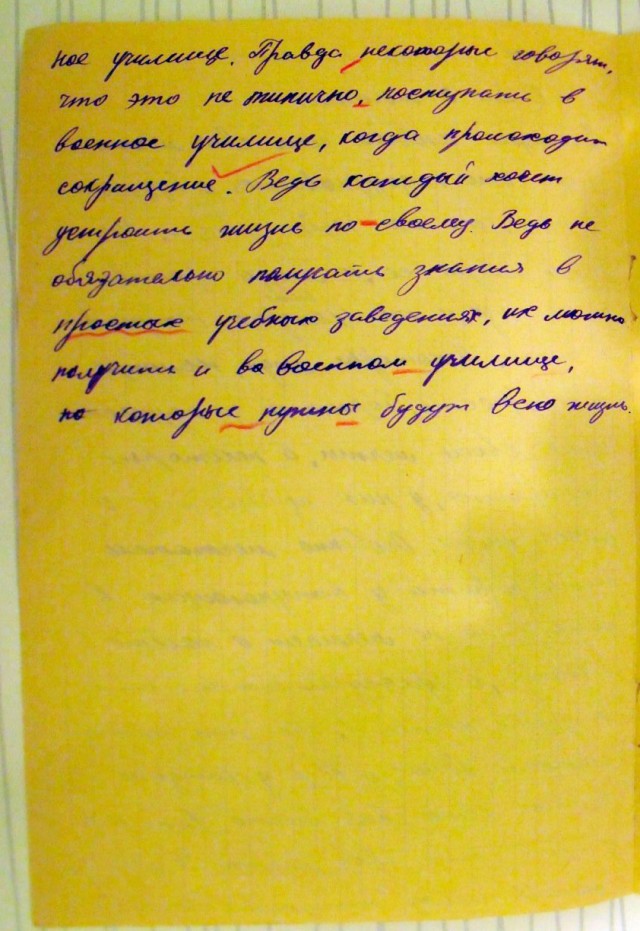 ное училище. Правда некоторые говорят,
что это не типично, поступать в
военное училище, когда происходит
сокращение. Ведь каждый хочет
устроить жизнь по-своему. Ведь не
обязательно получать знания в
простых учебных заведениях, их можно
получить и во военном училище,
но которые нужны будут всю жизнь.